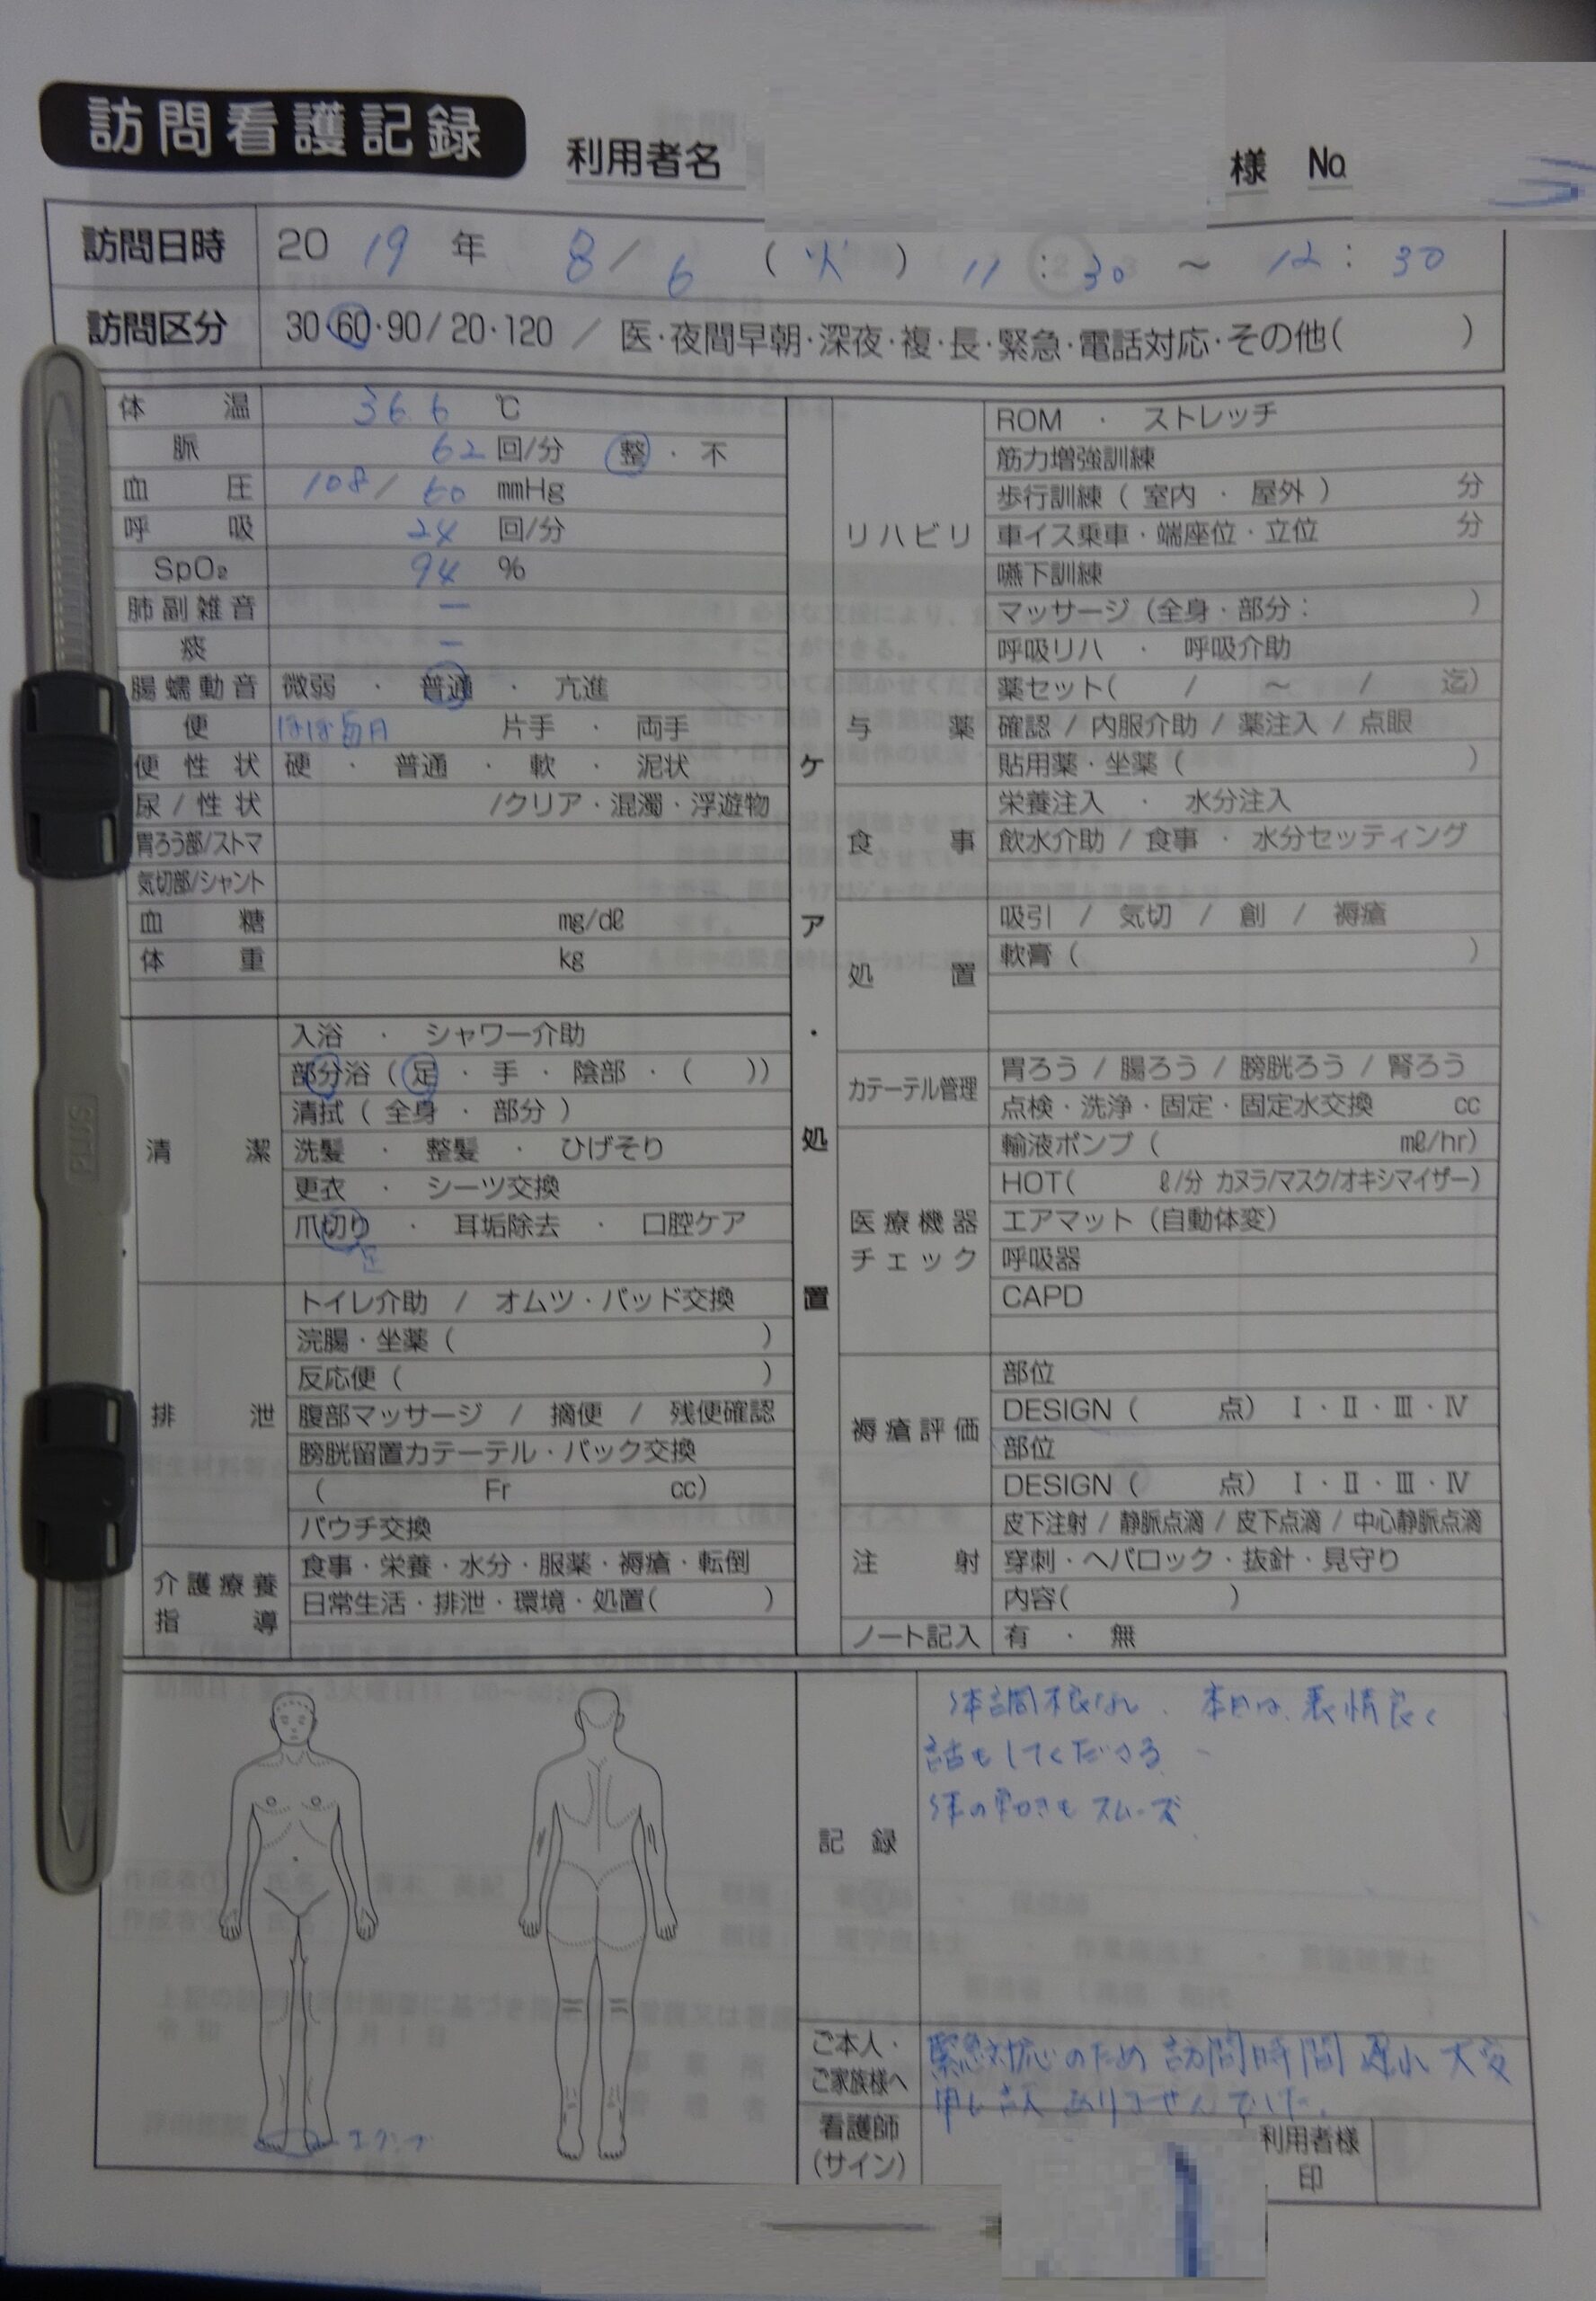 訪問看護記録 利用者名 様 No.
訪問日時 20 19 年 8/6 (火) 11:30 ～ 12:30
訪問区分 30・60・90/20・120 / 医・夜間早朝・深夜・複・長・緊急・電話対応・その他( )
体温 36.6 ℃
脈 62 回/分 整・不
血圧 108/60 mmHg
呼吸 24 回/分
SpO₂ 94 %
肺副雑音 ー
痰 ー
腸蠕動音 微弱・普通・亢進
便 ほぼ毎日 片手・両手
便性状 硬・普通・軟・泥状
尿/性状 /クリア・混濁・浮遊物
胃ろう部/ストマ
気切部/シャント
血糖 mg/dℓ
体重 kg
清潔
入浴・シャワー介助
部分浴(足・手・陰部・( ))
清拭(全身・部分)
洗髪・整髪・ひげそり
更衣・シーツ交換
爪切り・耳垢除去・口腔ケア
足
排泄
トイレ介助 / オムツ・パッド交換
浣腸・坐薬( )
反応便( )
腹部マッサージ / 摘便 / 残便確認
膀胱留置カテーテル・バック交換
( Fr cc)
パウチ交換
介護療養指導
食事・栄養・水分・服薬・褥瘡・転倒
日常生活・排泄・環境・処置( )
ケア・処置
リハビリ
ROM・ストレッチ
筋力増強訓練
歩行訓練(室内・屋外) 分
車イス乗車・端座位・立位 分
嚥下訓練
マッサージ(全身・部分: )
呼吸リハ・呼吸介助
与薬
薬セット( / ～ / 迄)
確認 / 内服介助 / 薬注入 / 点眼
貼用薬・坐薬( )
食事
栄養注入・水分注入
飲水介助 / 食事・水分セッティング
処置
吸引 / 気切 / 創 / 褥瘡
軟膏( )
カテーテル管理
胃ろう / 腸ろう / 膀胱ろう / 腎ろう
点検・洗浄・固定・固定水交換 cc
医療機器チェック
輸液ポンプ( mℓ/hr)
HOT( ℓ/分 カヌラ/マスク/オキシマイザー)
エアマット(自動体変)
呼吸器
CAPD
褥瘡評価
部位
DESIGN( 点) Ⅰ・Ⅱ・Ⅲ・Ⅳ
部位
DESIGN( 点) Ⅰ・Ⅱ・Ⅲ・Ⅳ
注射
皮下注射 / 静脈点滴 / 皮下点滴 / 中心静脈点滴
穿刺・ヘパロック・抜針・見守り
内容( )
ノート記入 有・無
記録
体調不良なし、本日は、表情良く
話もしてくださる
体の動きもスムーズ
ご本人・ご家族様へ
緊急対応のため訪問時間遅れ大変
申し訳ありませんでした。
看護師(サイン)
利用者様印
PLUS